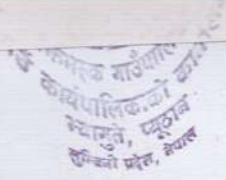 गाउँपालि
कार्यपालिकाको का
भ्यागुते, प्यूठान
लुम्बिनी प्रदेश, नेपाल